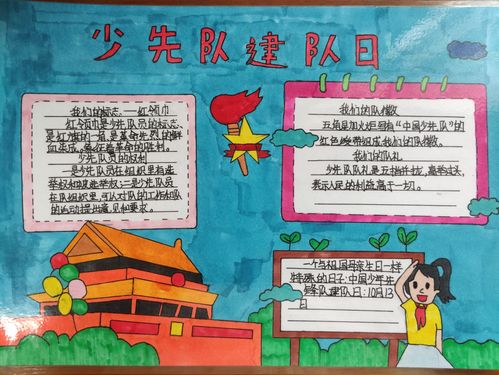 少先队建队日
我们的标志——红领巾
红领巾是少先队员的标志、
是红旗的一角,是革命先烈的鲜
血染成,象征着革命的胜利。
少先队员的权利
一是少先队员在组织里有选
举权和被选举权;二是少先队员
在队组织里,可以对队的工作和队
的活动提出意见和要求。
我们的队徽
五角星加火炬和写有“中国少先队”的
红色绶带组成我们的队徽。
我们的队礼
少先队队礼是五指并拢,高举过头,
表示人民的利益高于一切。
一个与祖国母亲生日一样
特殊的日子:中国少年先
锋队建队日:10月13
日